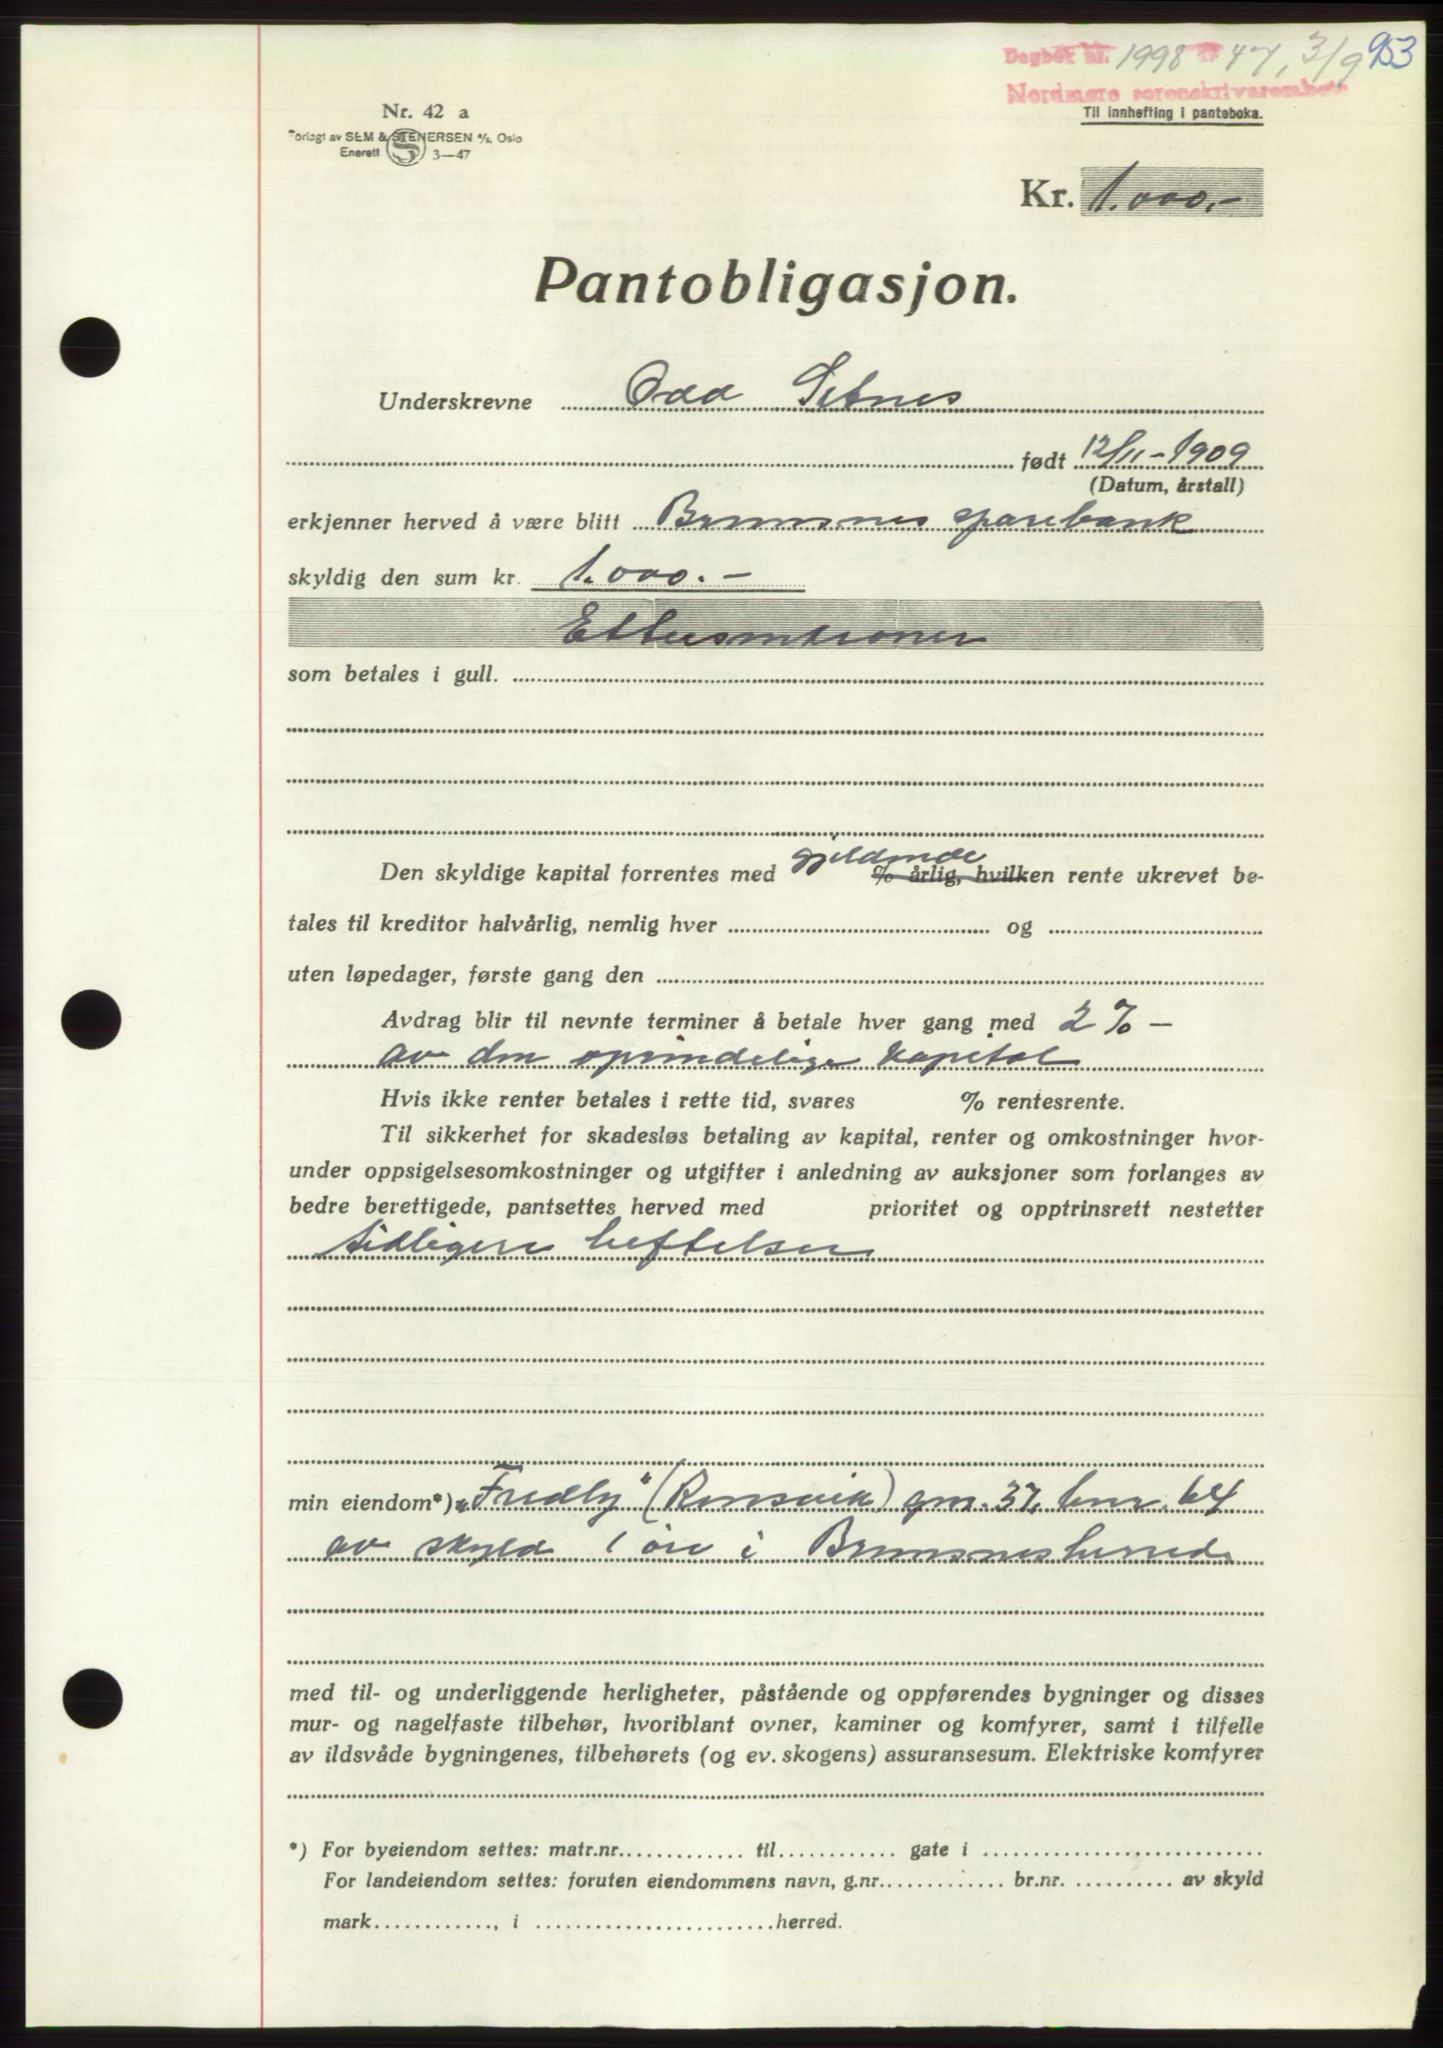 Dagbok nr. 1998 47, 3/9 953
Nordmøre sorenskriverembete
Til innhefting i panteboka.
Nr. 42 a
Forlagt av SEM & STENERSEN A/S, Oslo
Enerett S 3—47
Kr. 1.000,-
Pantobligasjon.
Underskrevne Odd Setnes
født 12/11-1909
(Datum, årstall)
erkjenner herved å være blitt Bremsnes sparebank
skyldig den sum kr. 1.000.-
Ettusenkroner
som betales i gull.
gjeldende
Den skyldige kapital forrentes med % årlig, hvilken rente ukrevet be-
tales til kreditor halvårlig, nemlig hver og
uten løpedager, første gang den
Avdrag blir til nevnte terminer å betale hver gang med 2% -
av den oprindelige kapital
Hvis ikke renter betales i rette tid, svares % rentesrente.
Til sikkerhet for skadesløs betaling av kapital, renter og omkostninger hvor-
under oppsigelsesomkostninger og utgifter i anledning av auksjoner som forlanges av
bedre berettigede, pantsettes herved med prioritet og opptrinsrett nestetter
tidligere heftelser
min eiendom*) „Fredly" (Rensvik) gnr. 37, bnr. 64
av skyld 1 øre i Bremsnes herred
med til- og underliggende herligheter, påstående og oppførendes bygninger og disses
mur- og nagelfaste tilbehør, hvoriblant ovner, kaminer og komfyrer, samt i tilfelle
av ildsvåde bygningenes, tilbehørets (og ev. skogens) assuransesum. Elektriske komfyrer
*) For byeiendom settes: matr.nr. til gate i
For landeiendom settes: foruten eiendommens navn, g.nr. br.nr. av skyld
mark , i herred.